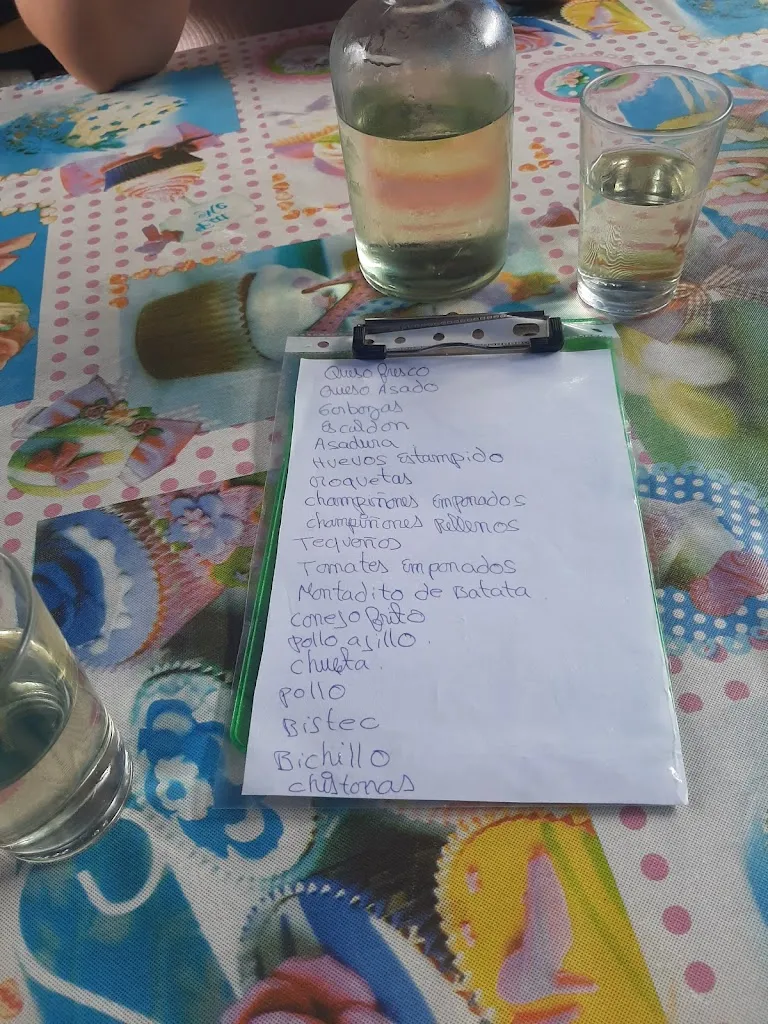 Queso fresco
Queso Asado
Garbazas
Escaldon
Asadura
Huevos Estampido
Croquetas
champiñones Emponados
champiñones Rellenos
Tequeños
Tomates Emponados
Montadito de Batata
conejo frito
pollo ajillo.
chuleta.
pollo
Bistec
Bichillo
chistonas